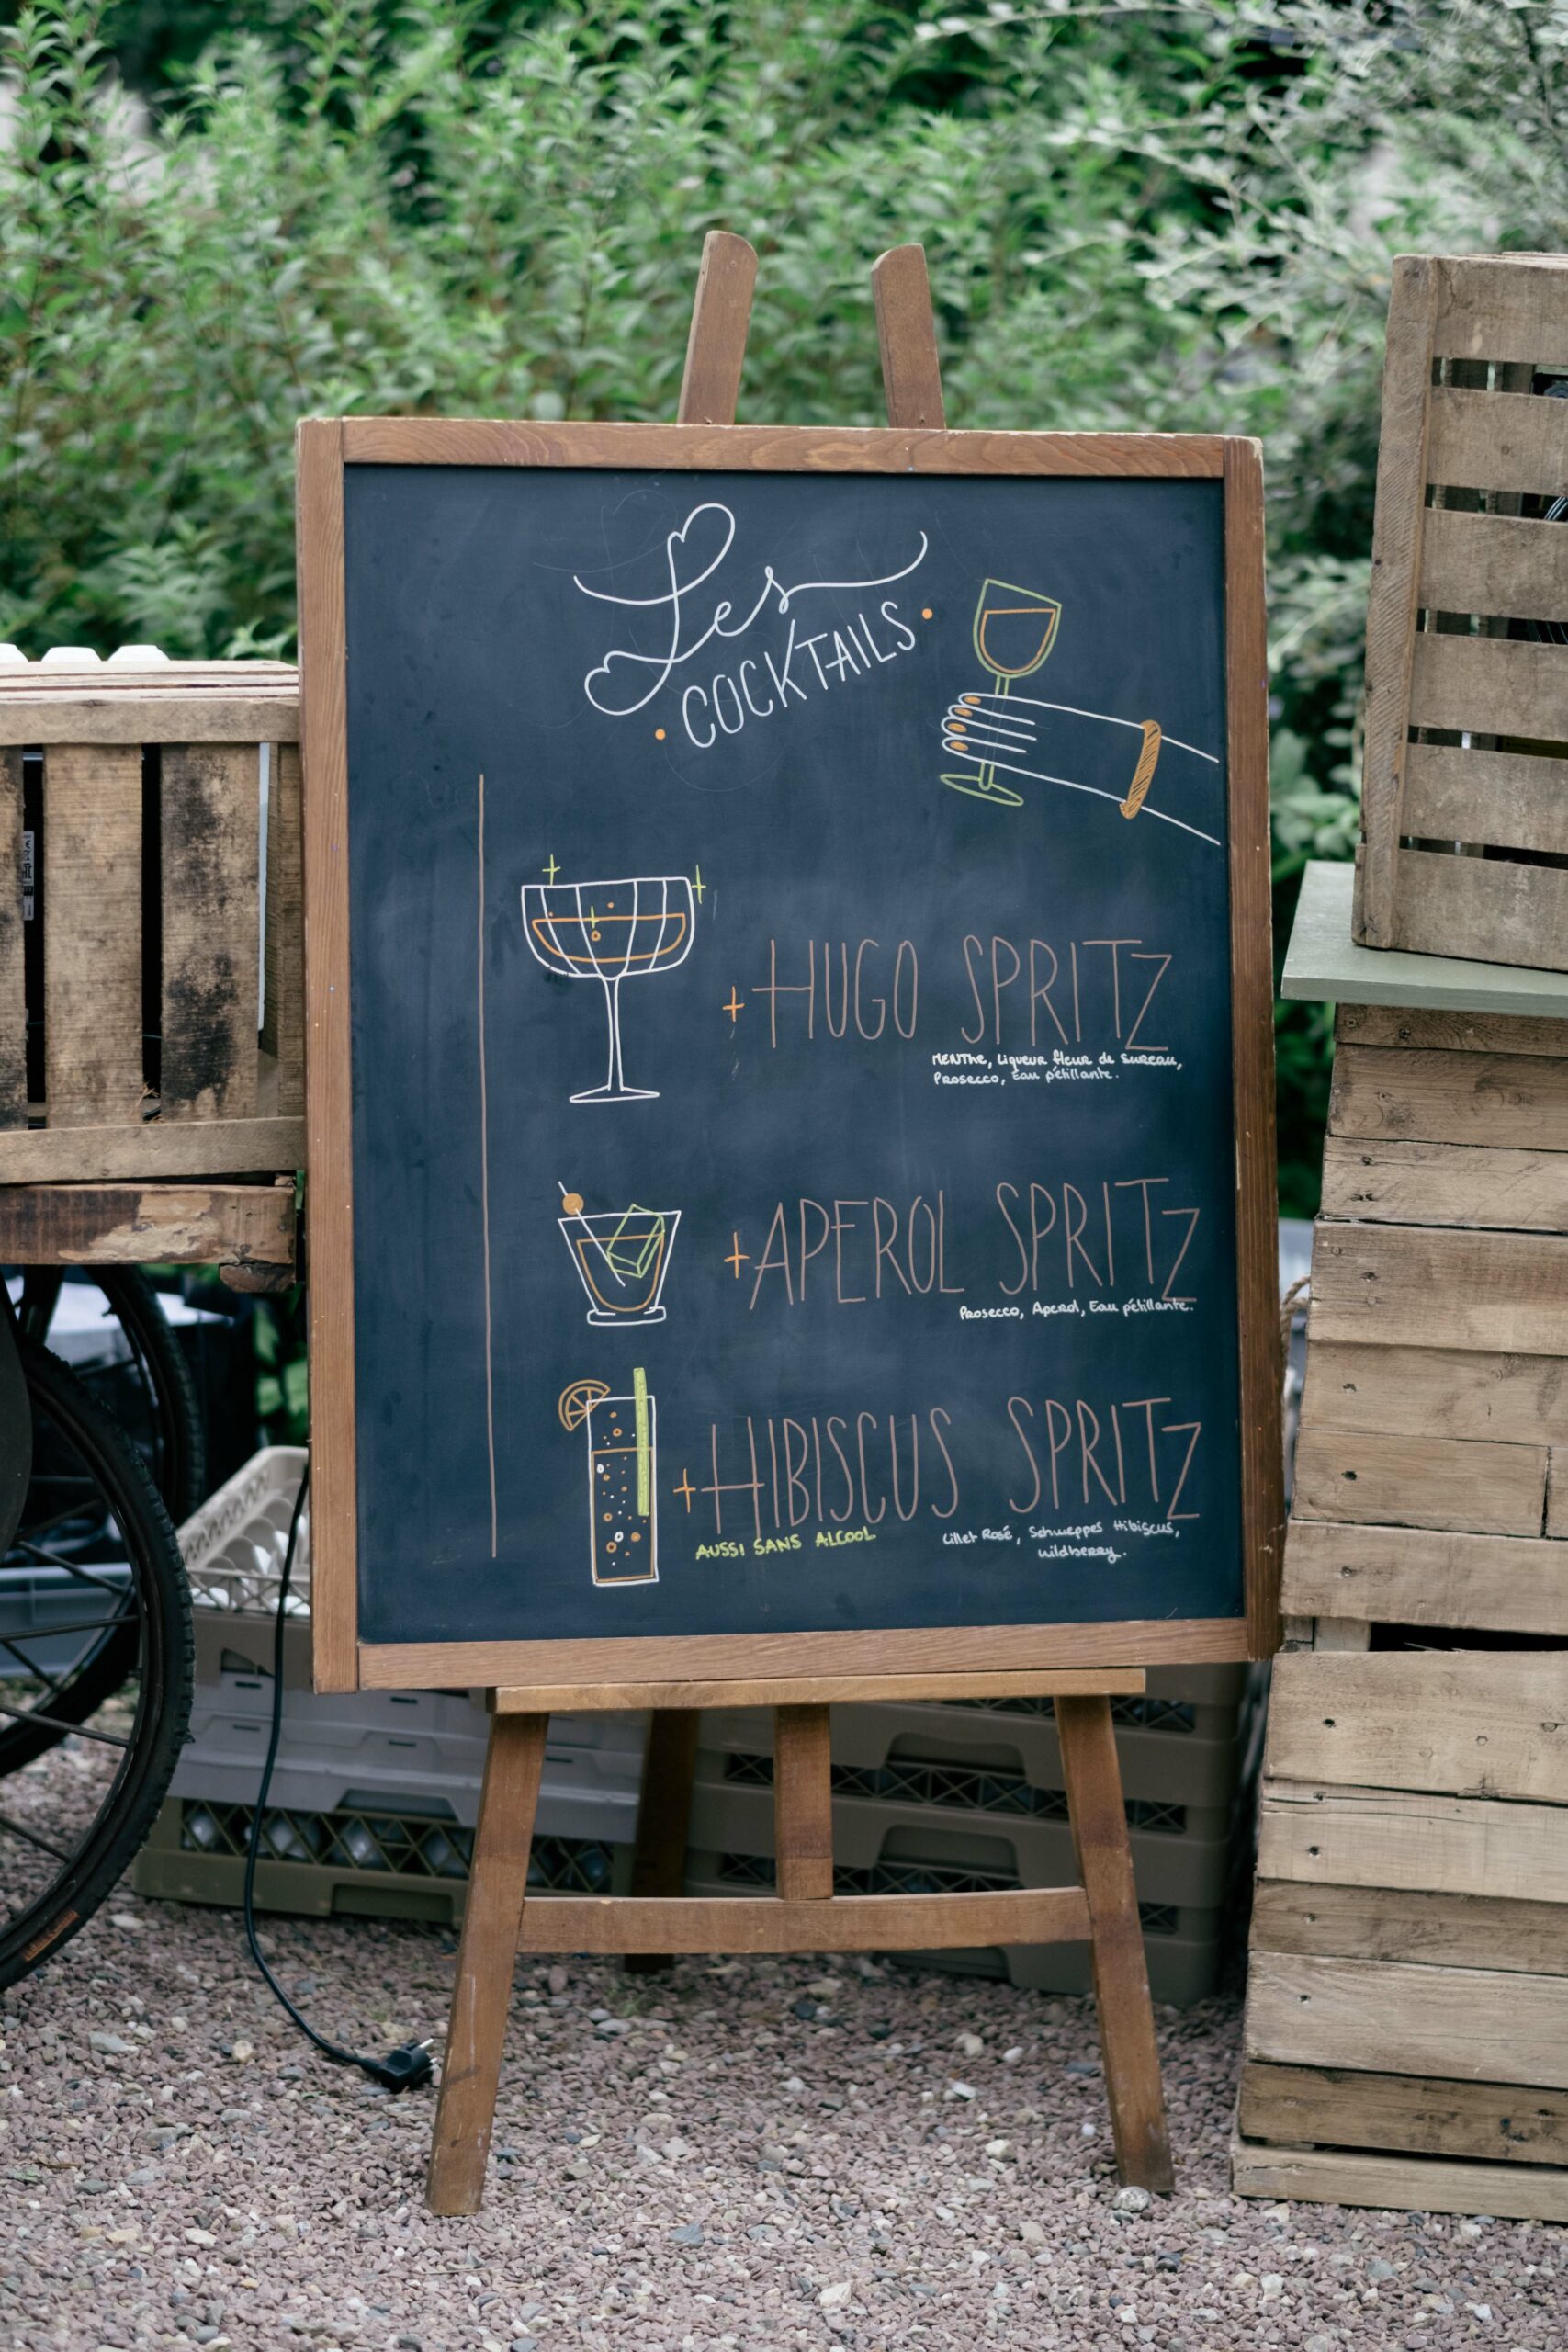 Les
COCKTAILS
+ HUGO SPRITZ
MENTHE, Liqueur fleur de Sureau,
Prosecco, Eau pétillante.
+ APEROL SPRITZ
Prosecco, Aperol, Eau pétillante.
+ HIBISCUS SPRITZ
AUSSI SANS ALCOOL
Lillet Rosé, Schweppes Hibiscus,
wildberry.